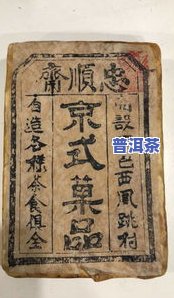 忠順齋
設邑西鳳跳村
京式菓品
自造各樣茶食俱全
普洱茶